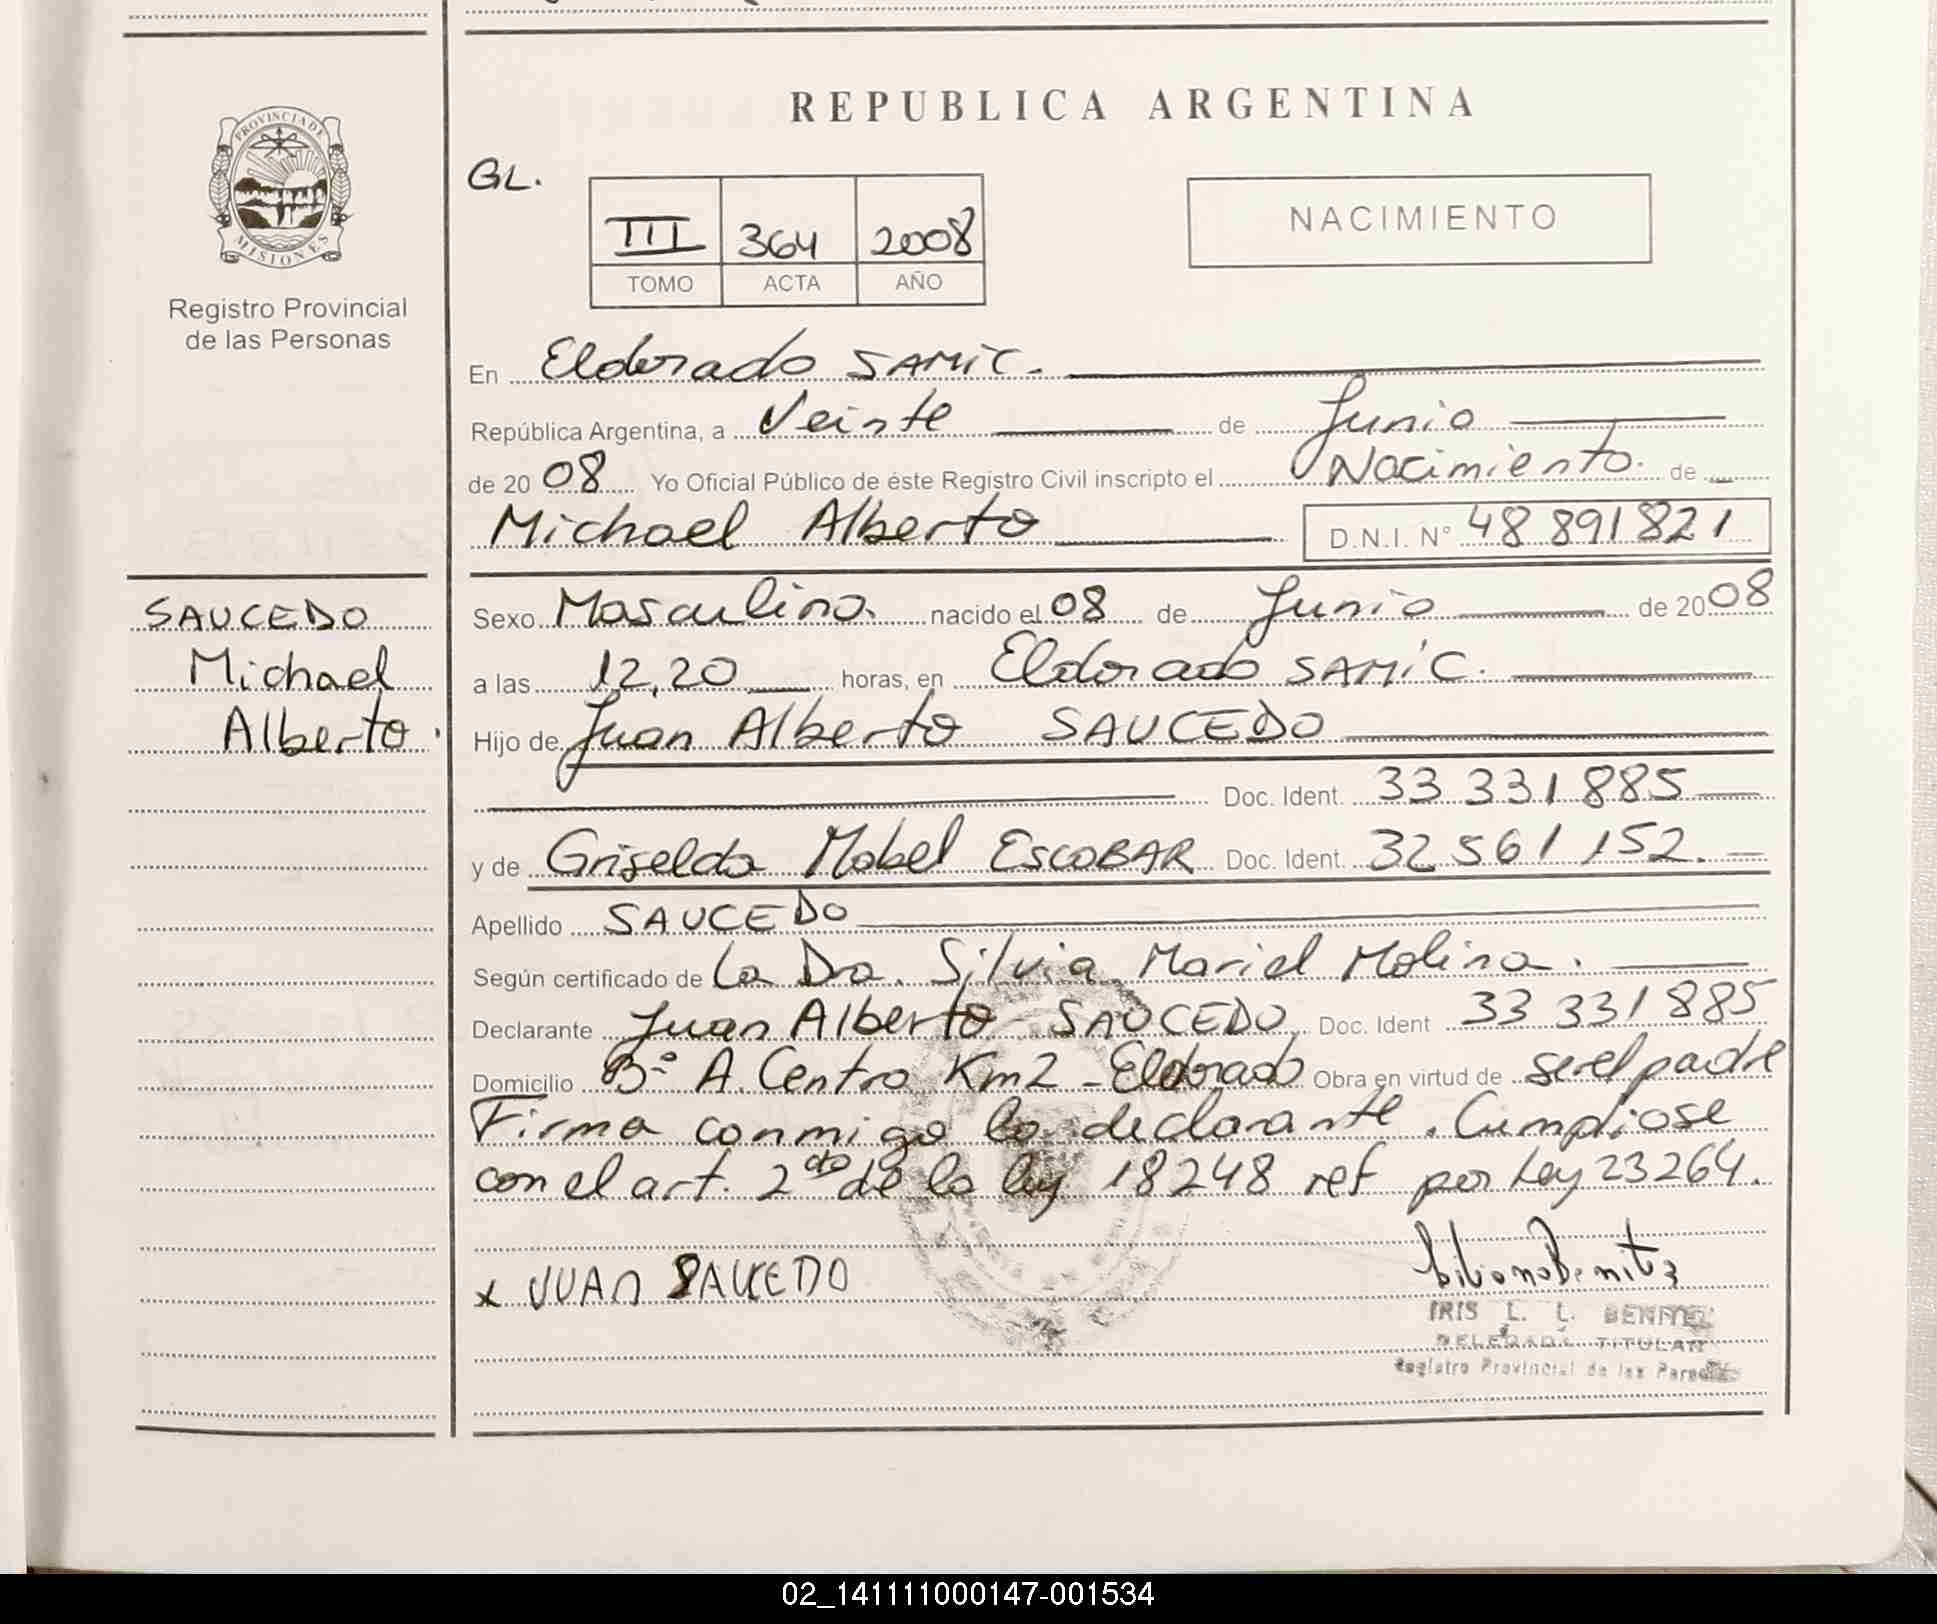 REPUBLICA ARGENTINA
PROVINCIA DE
MISIONES
Registro Provincial
de las Personas
GL.
III 364 2008
TOMO ACTA AÑO
NACIMIENTO
En Eldorado SAMIC.
República Argentina, a Veinte de Junio
de 2008 Yo Oficial Público de éste Registro Civil inscripto el Nacimiento. de
Michael Alberto D.N.I. Nº 48 891821
SAUCEDO
Michael
Alberto.
Sexo Masculino. nacido el 08 de Junio de 2008
a las 12,20 horas, en Eldorado SAMIC.
Hijo de Juan Alberto SAUCEDO
Doc. Ident. 33 331 885
y de Griselda Mabel ESCOBAR Doc. Ident. 32 561 152.
Apellido SAUCEDO
Según certificado de La Dra. Silvia Mariel Molina.
Declarante Juan Alberto SAUCEDO Doc. Ident 33 331 885
Domicilio Bº A. Centro Km2 - Eldorado Obra en virtud de ser el padre
Firma conmigo la declarante. Cumpliose
con el art. 2do de la ley 18248 ref por Ley 23264.
x JUAN SAUCEDO
IRIS L. L. BENITEZ
DELEGADA TITULAR
Registro Provincial de las Personas
02_141111000147-001534